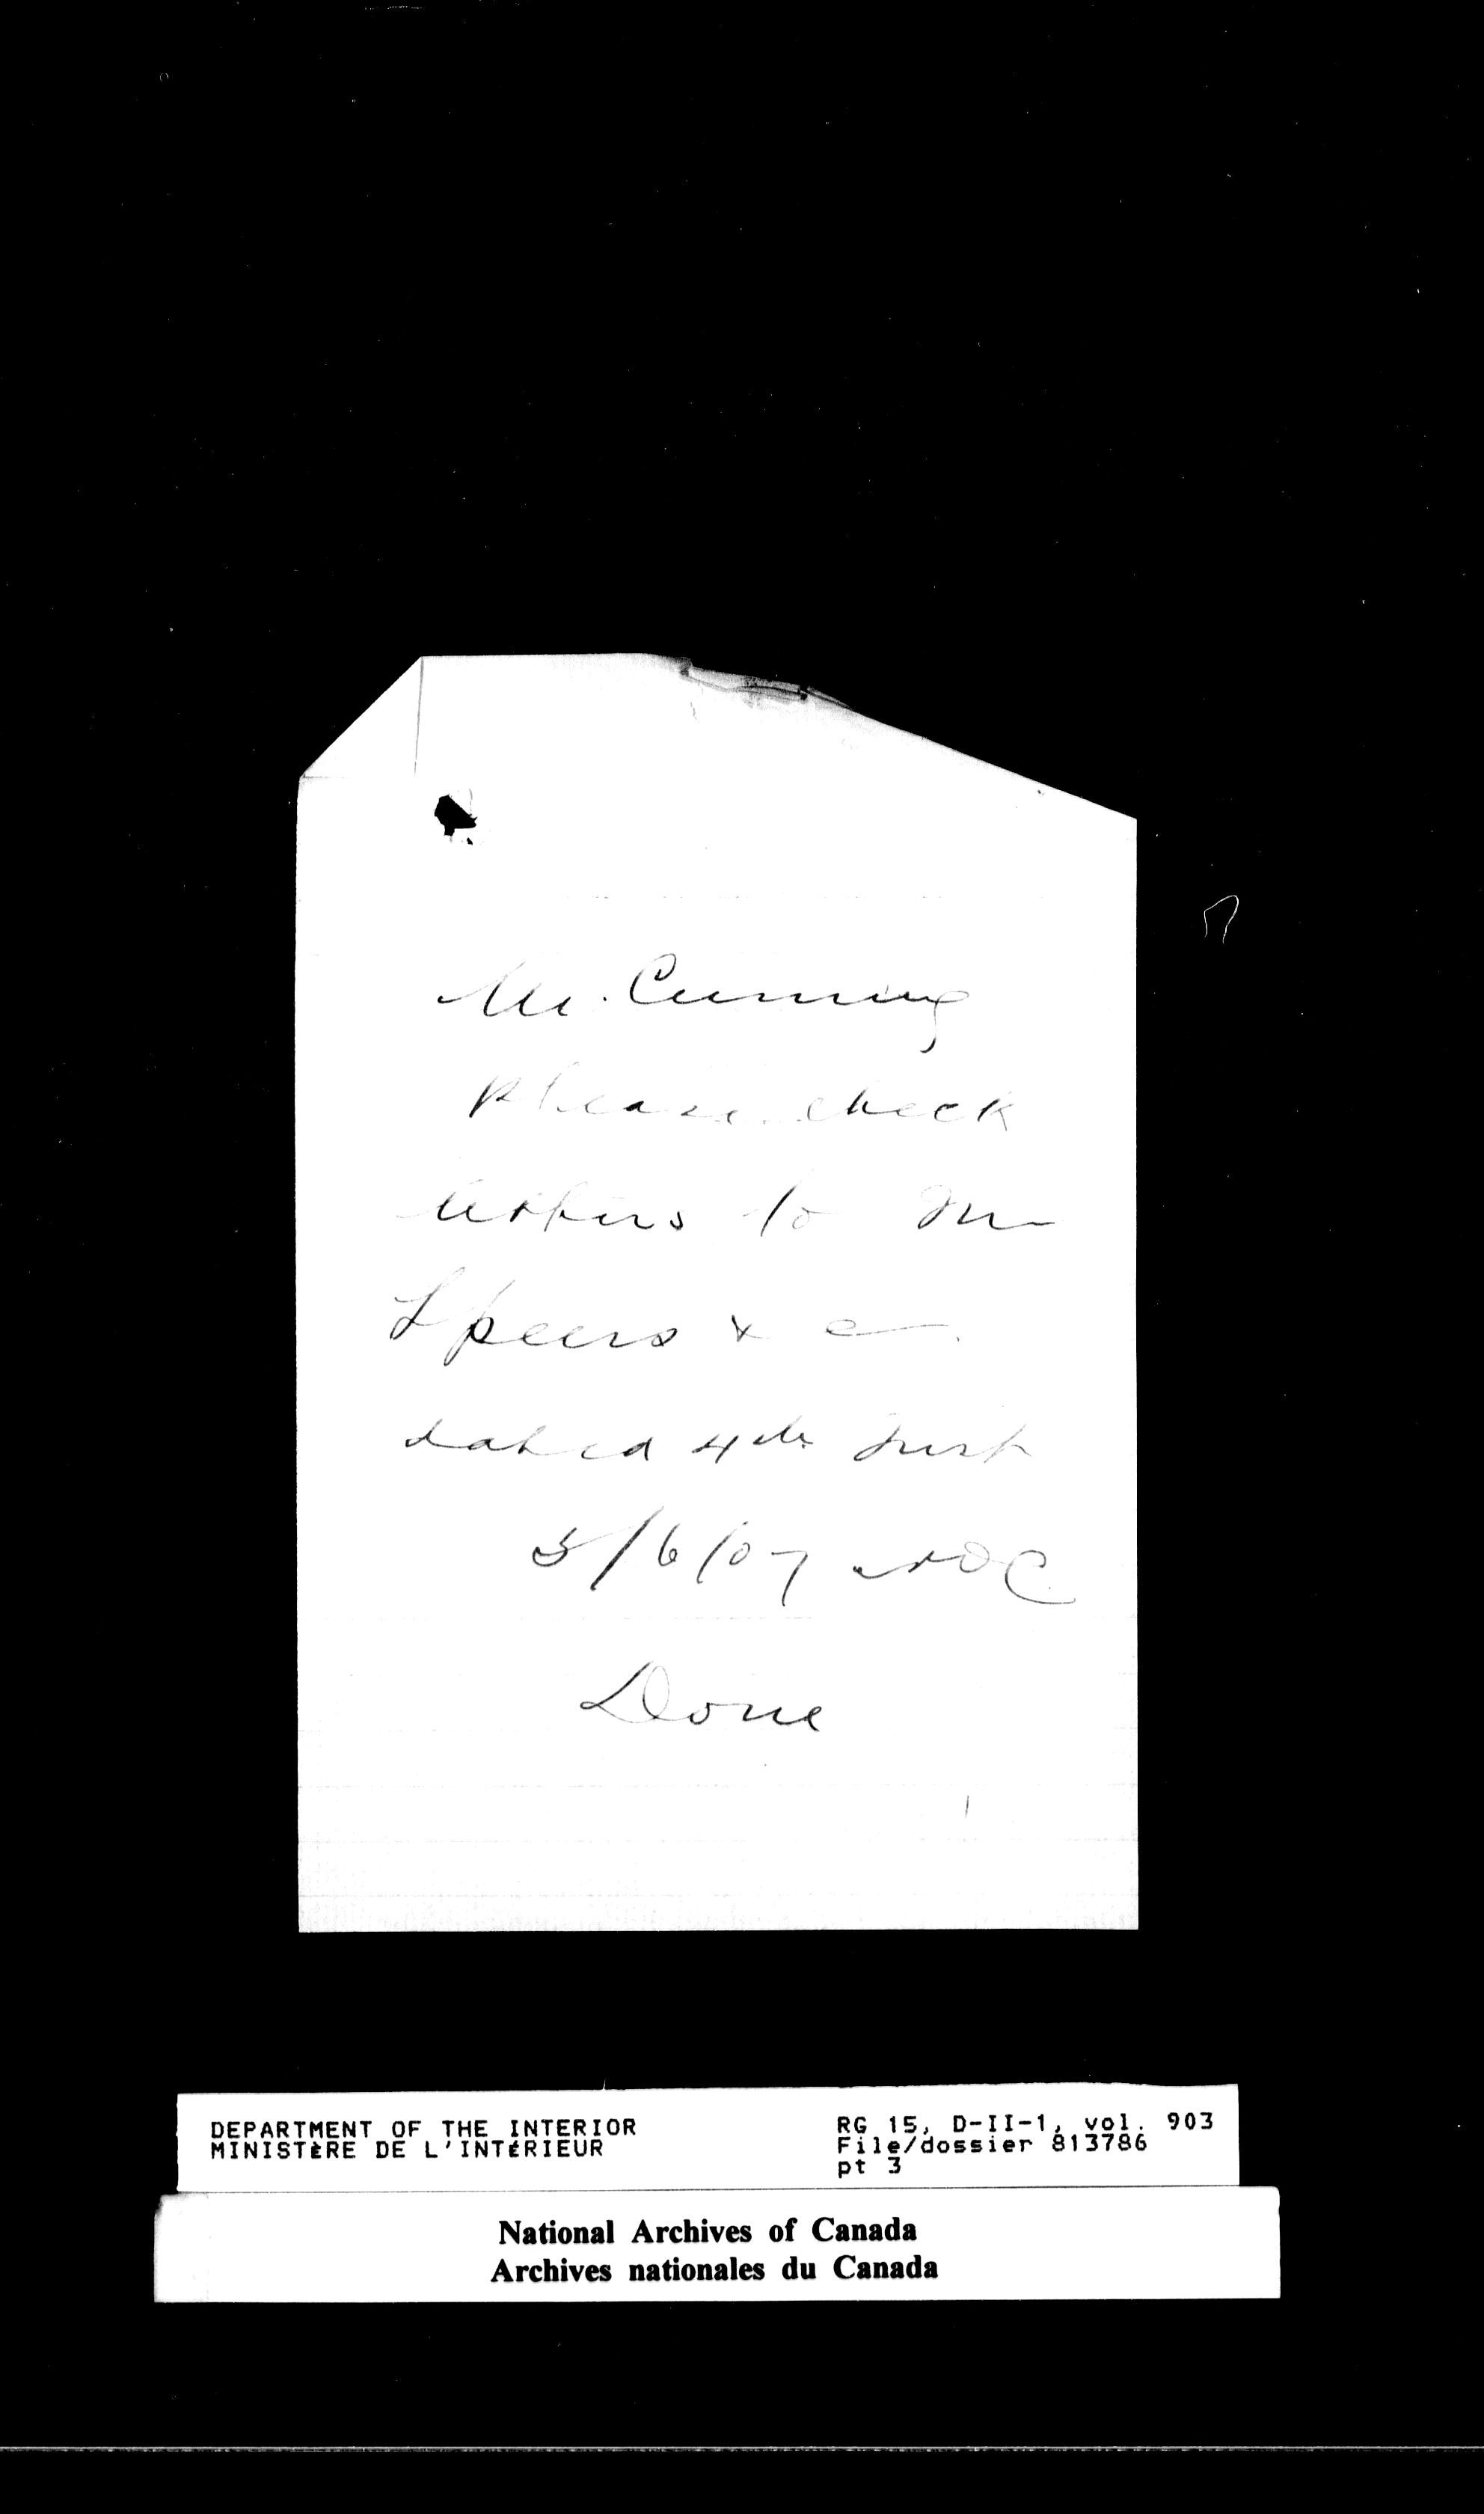 Mr. Cuming
Please check
letters to Mr
Speers & c
dated 4th Inst
5/6/07 NOC
Done
DEPARTMENT OF THE INTERIOR
MINISTÈRE DE L'INTÉRIEUR
RG 15, D-II-1, vol. 903
File/dossier 813786
pt 3
National Archives of Canada
Archives nationales du Canada